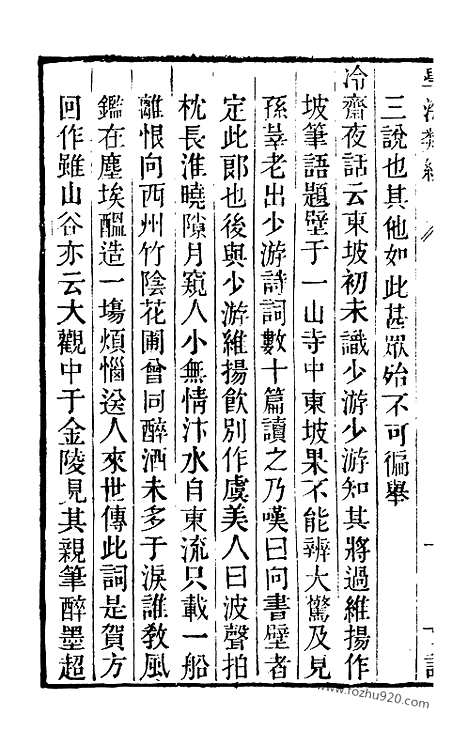 三說也其他如此甚眾殆不可徧舉
冷齋夜話云東坡初未識少游少游知其將過維揚作
坡筆語題壁于一山寺中東坡果不能辨大驚及見
孫莘老出少游詩詞數十篇讀之乃嘆曰向書壁者
定此郎也後與少游維揚飲別作虞美人曰波聲拍
枕長淮曉隙月窺人小無情汴水自東流只載一船
離恨向西州竹陰花圃曾同醉酒未多于淚誰教風
鑑在塵埃醞造一場煩惱送人來世傳此詞是賀方
回作雖山谷亦云大觀中于金陵見其親筆醉墨超
www.fozhu920.com